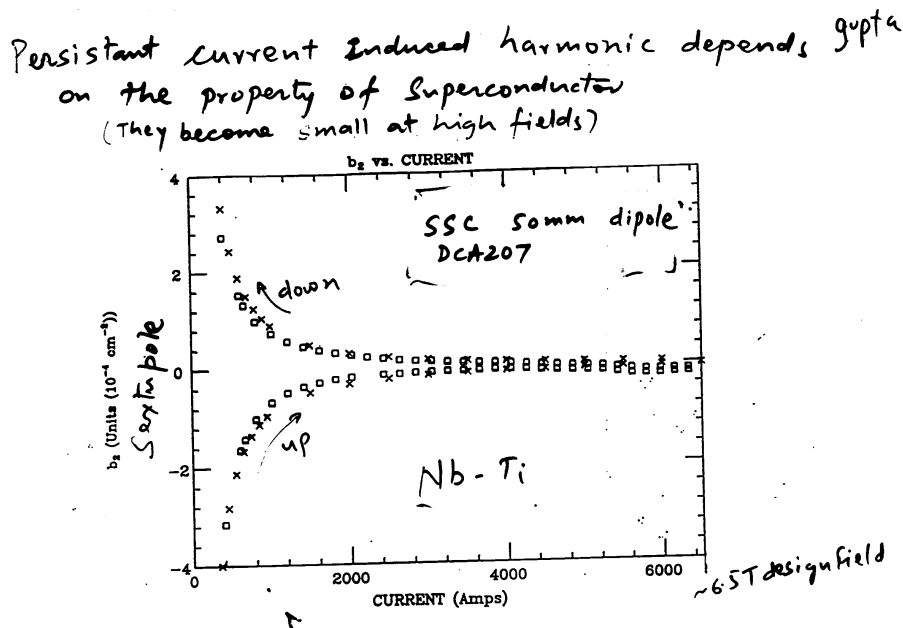 Persistant current Induced harmonic depends gupta
on the property of Superconductor
(They become small at high fields)
b₂ vs. CURRENT
SSC 50mm dipole
DCA207
down
up
Nb-Ti
b₂ (Units (10⁻⁴ cm⁻²))
Sextupole
4
2
0
−2
−4
0 2000 4000 6000
CURRENT (Amps)
~6.5T design field